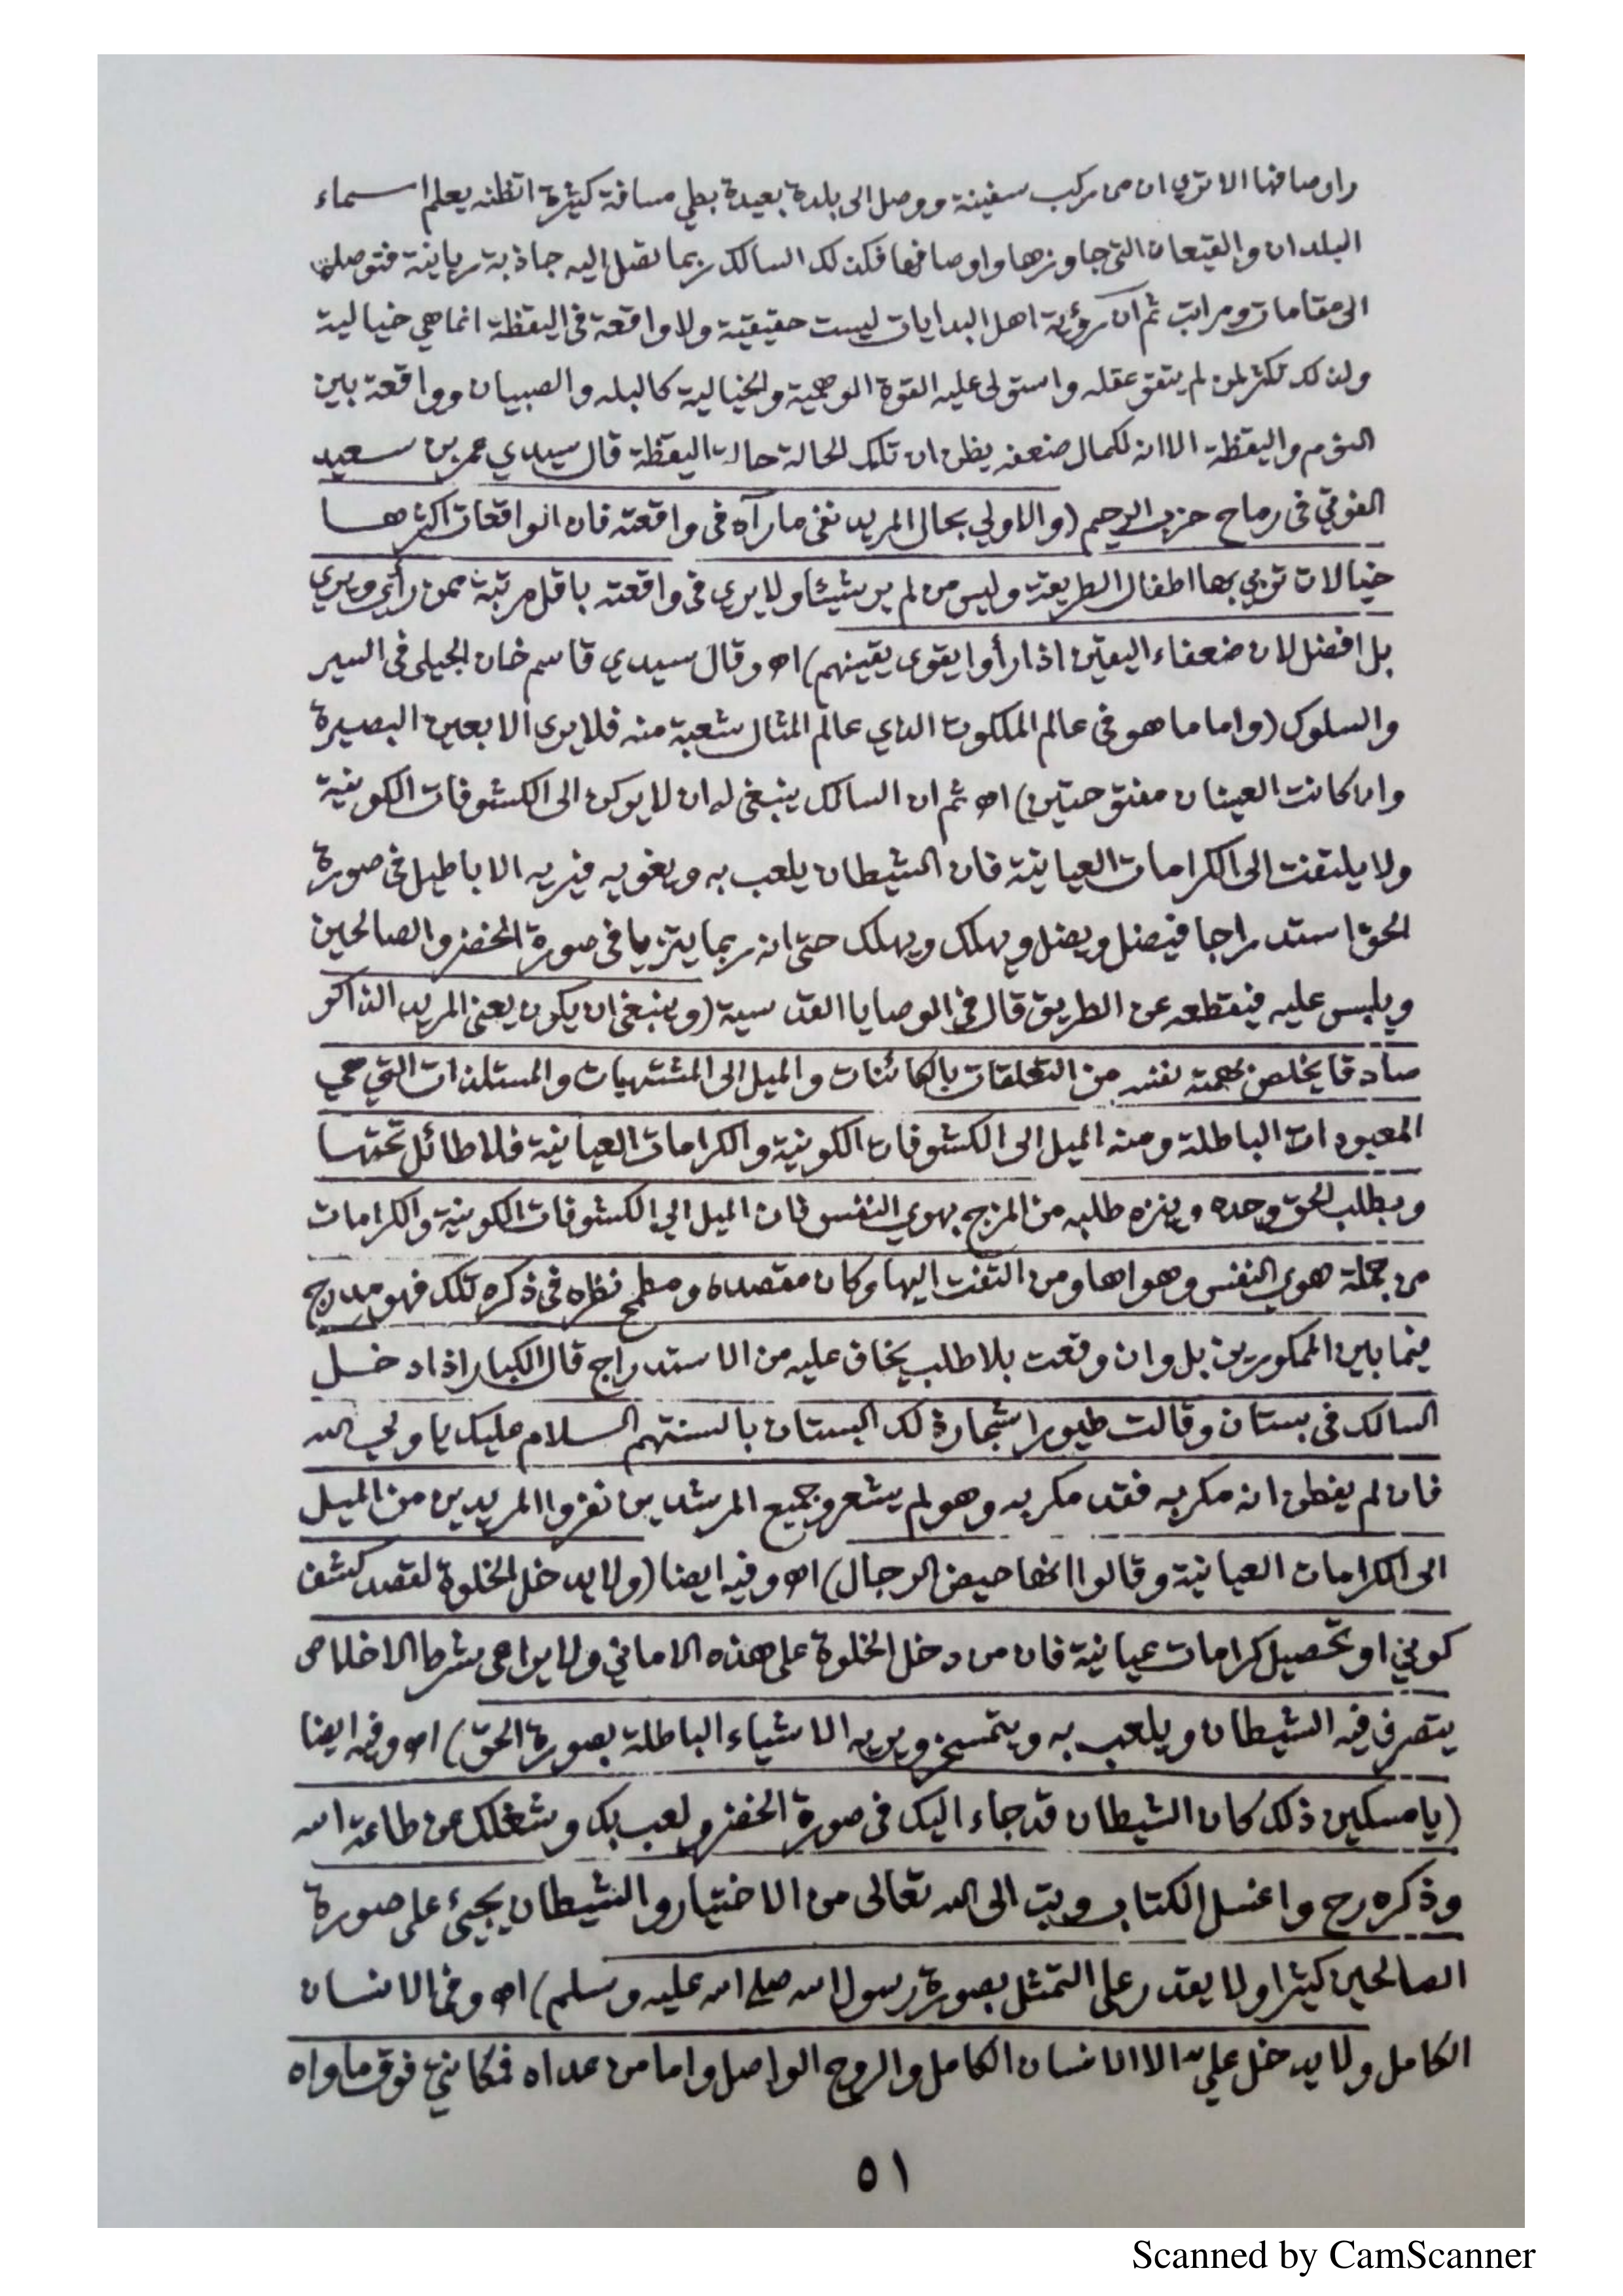 واوصافها الا ترى ان من ركب سفينة ووصل الى بلدة بعيدة بطي مسافة كثيرة اتظنه يعلم اسماء
البلدان والقيعان التي جاوزها واوصافها فكذلك السالك ربما تصل اليه جاذبة ربانية فتوصله
الى مقامات ومراتب ثم ان رؤية اهل البدايات ليست حقيقية ولا واقعة في اليقظة انما هي خيالية
ولذلك تكثر لمن لم يتقو عقله واستولى عليه القوة الوهمية والخيالية كالبله والصبيان وواقعة بين
النوم واليقظة الا انه لكمال ضعفه يظن ان تلك الحالة حالة اليقظة قال سيدي عمر بن سعيد
الفوتي في رماح حزب الرحيم (والاولي بحال المريد نفي ما رآه في واقعته فان الواقعات اكثرها
خيالات تربي بها اطفال الطريقة وليس من لم ير شيئا ولا يرى في واقعته باقل مرتبة ممن رأى ويرى
بل افضل لان ضعفاء اليقين اذا رأوا يقوى يقينهم) اه وقال سيدي قاسم خان الجيلي في السير
والسلوك (واما ما هو في عالم الملكوت الذي عالم المثال شعبة منه فلا يرى الا بعين البصيرة
وان كانت العينان مفتوحتين) اه ثم ان السالك ينبغي له ان لا يركن الى الكشوفات الكونية
ولا يلتفت الى الكرامات العيانية فان الشيطان يلعب به ويغويه فيريه الاباطيل في صورة
الحق استدراجا فيضل ويضل ويهلك ويهلك حتى انه ربما يتزيا في صورة الخضر والصالحين
ويلبس عليه فيقطعه عن الطريق قال في الوصايا القدسية (وينبغي ان يكون يعني المريد الذاكر
صادقا يخلص بهمته نفسه من التعلقات بالكائنات والميل الى المشتهيات والمستلذات التي هي
المعبودات الباطلة ومنه الميل الى الكشوفات الكونية والكرامات العيانية فلا طائل تحتها
ويطلب الحق وحده وينزه طلبه من المزج بهوى النفس فان الميل الي الكشوفات الكونية والكرامات
من جملة هوى النفس وهواها ومن التفت اليها وكان مقصده ومطمح نظره في ذكره تلك فهو مدرج
فيما بين الممكورين بل وان وقعت بلا طلب يخاف عليه من الاستدراج قال الكبار اذا دخل
السالك في بستان وقالت طيور اشجار ذلك البستان بالسنتهم السلام عليك يا ولي الله
فان لم يفطن انه مكر به فقد مكر به وهو لم يشعر وجميع المرشدين نفروا المريدين من الميل
الى الكرامات العيانية وقالوا انها حيض الرجال) اه وفيه ايضا (ولا يدخل الخلوة لقصد كشف
كوني او تحصيل كرامات عيانية فان من دخل الخلوة على هذه الاماني ولا يراعى شرط الاخلاص
يتصرف فيه الشيطان ويلعب به ويتمسخر ويريه الاشياء الباطلة بصورة الحق) اه وفيه ايضا
(يا مسكين ذلك كان الشيطان قد جاء اليك في صورة الخضر ولعب بك وشغلك عن طاعة الله
وذكره رح واغسل الكتاب وتب الى الله تعالى من الاختيار والشيطان يجيئ على صورة
الصالحين كثيرا ولا يقدر على التمثل بصورة رسول الله صلى الله عليه وسلم) اه وفي الانسان
الكامل ولا يدخل عليه الا الانسان الكامل والروح الواصل واما من عداه فمكانتي فوق ماواه
٥١
Scanned by CamScanner